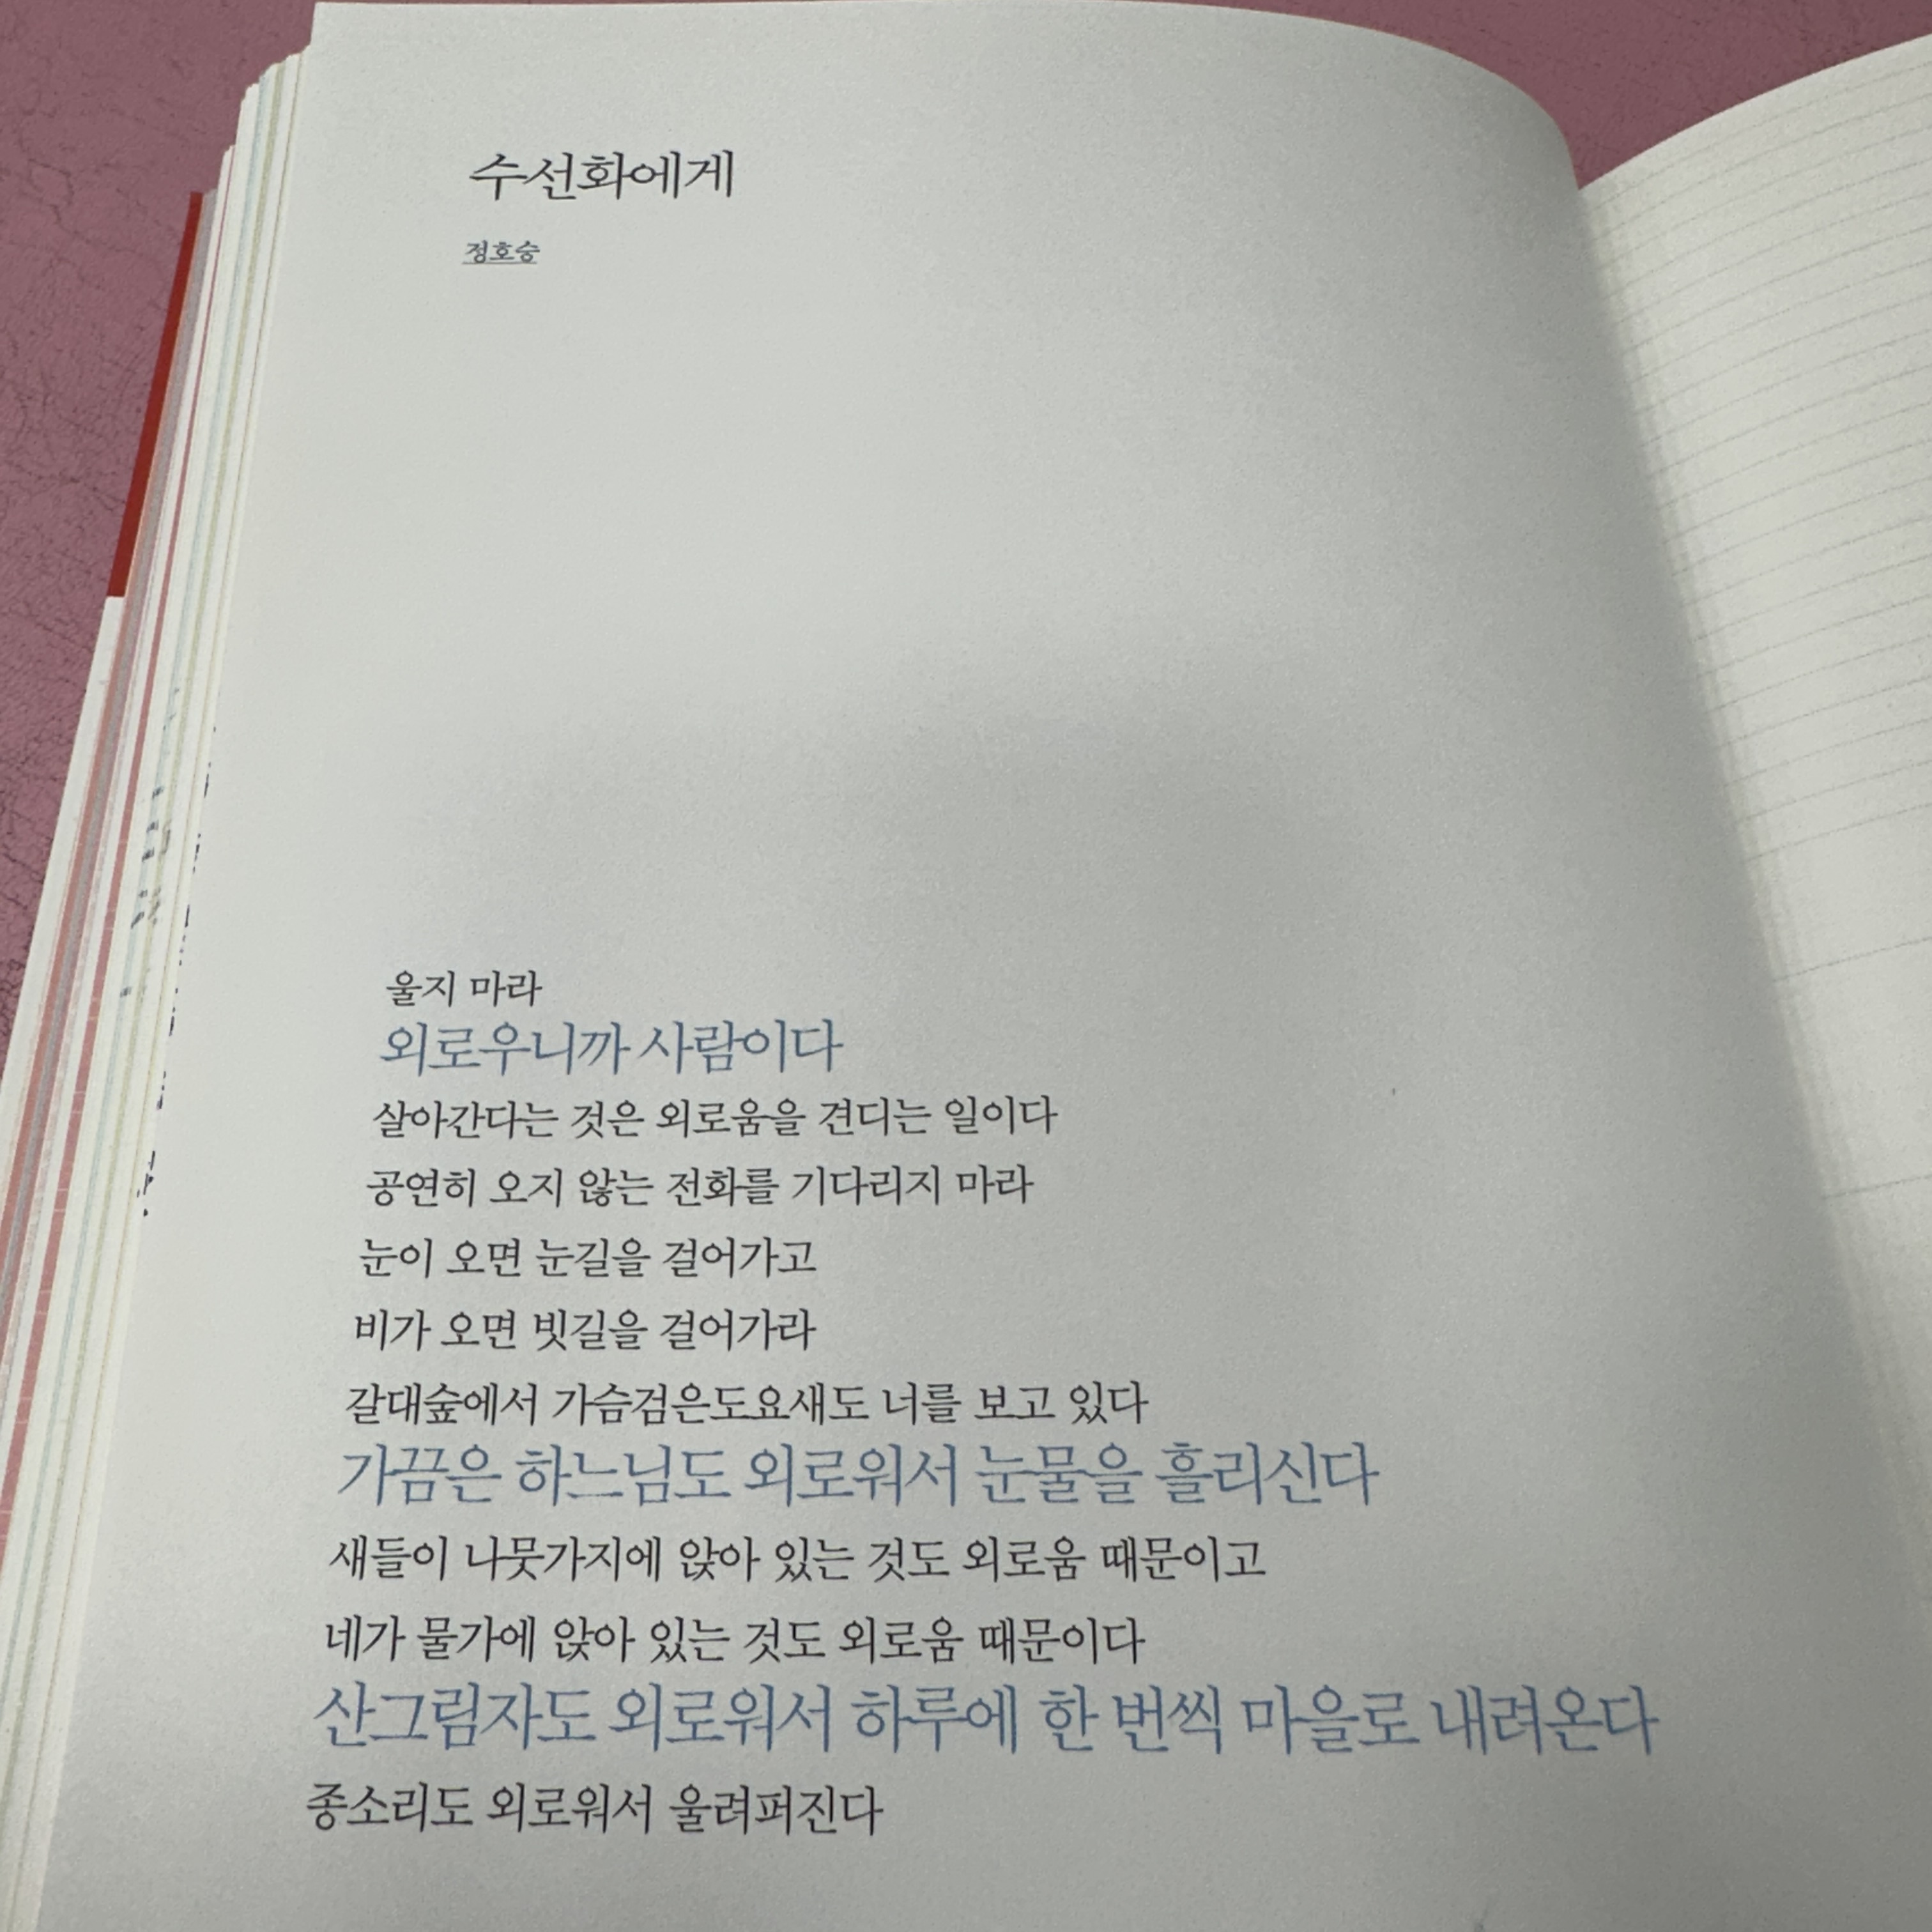 수선화에게
정호승
울지 마라
외로우니까 사람이다
살아간다는 것은 외로움을 견디는 일이다
공연히 오지 않는 전화를 기다리지 마라
눈이 오면 눈길을 걸어가고
비가 오면 빗길을 걸어가라
갈대숲에서 가슴검은도요새도 너를 보고 있다
가끔은 하느님도 외로워서 눈물을 흘리신다
새들이 나뭇가지에 앉아 있는 것도 외로움 때문이고
네가 물가에 앉아 있는 것도 외로움 때문이다
산그림자도 외로워서 하루에 한 번씩 마을로 내려온다
종소리도 외로워서 울려퍼진다